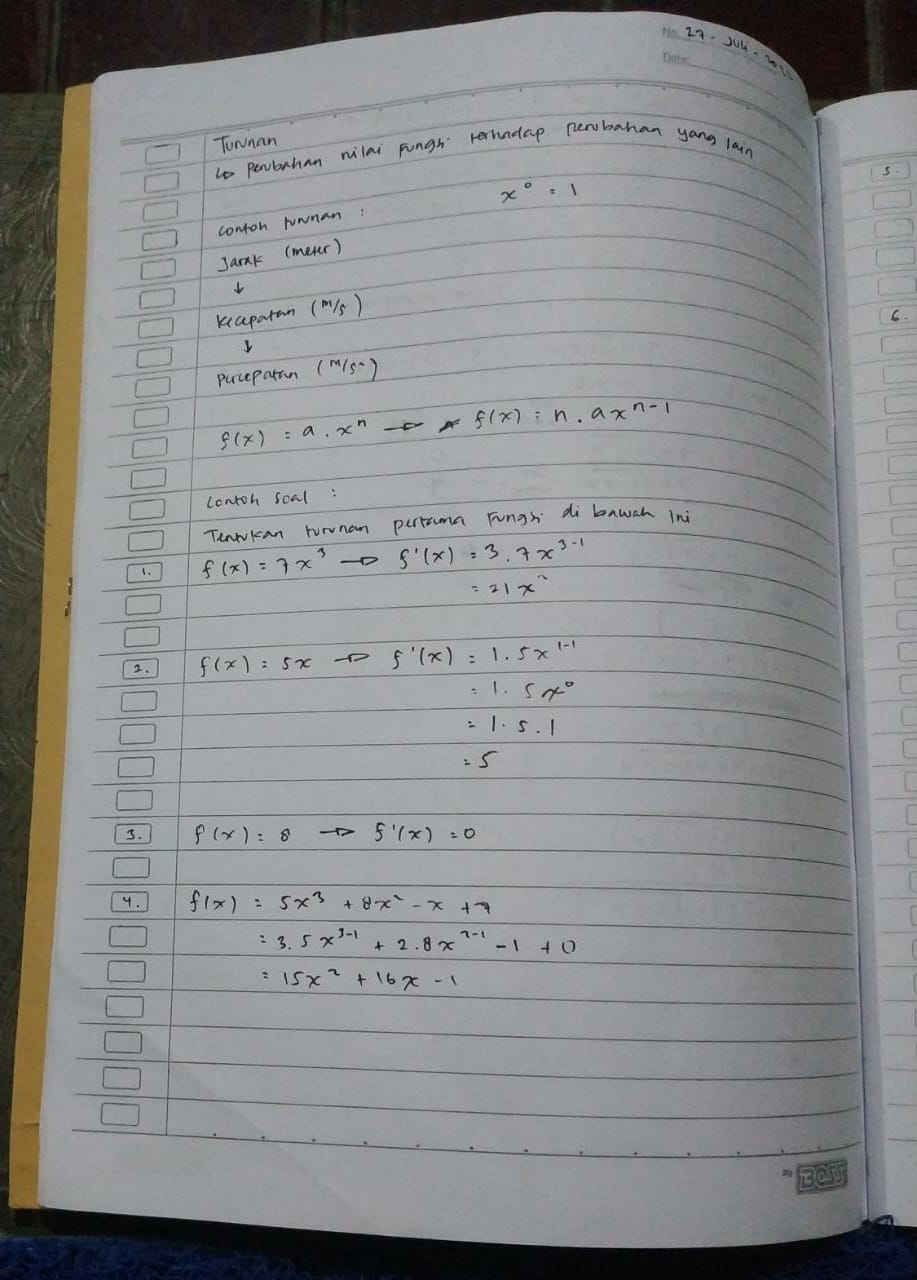 No. 27 - Juli - 
Date:
Turunan
↳ Perubahan nilai fungsi terhadap perubahan yang lain
Contoh turunan : x⁰ = 1
Jarak (meter)
↓
Kecepatan (m/s)
↓
Percepatan (m/s²)
f(x) = a . xⁿ → f(x) = n . axⁿ⁻¹
Contoh soal :
Tentukan turunan pertama fungsi di bawah ini
1. f(x) = 7x³ → f'(x) = 3 . 7x³⁻¹
= 21x²
2. f(x) = 5x → f'(x) = 1 . 5x¹⁻¹
= 1 . 5x⁰
= 1 . 5 . 1
= 5
3. f(x) = 8 → f'(x) = 0
4. f(x) = 5x³ + 8x² - x + 7
= 3 . 5x³⁻¹ + 2 . 8x²⁻¹ - 1 + 0
= 15x² + 16x - 1
BOSS
5.
6.